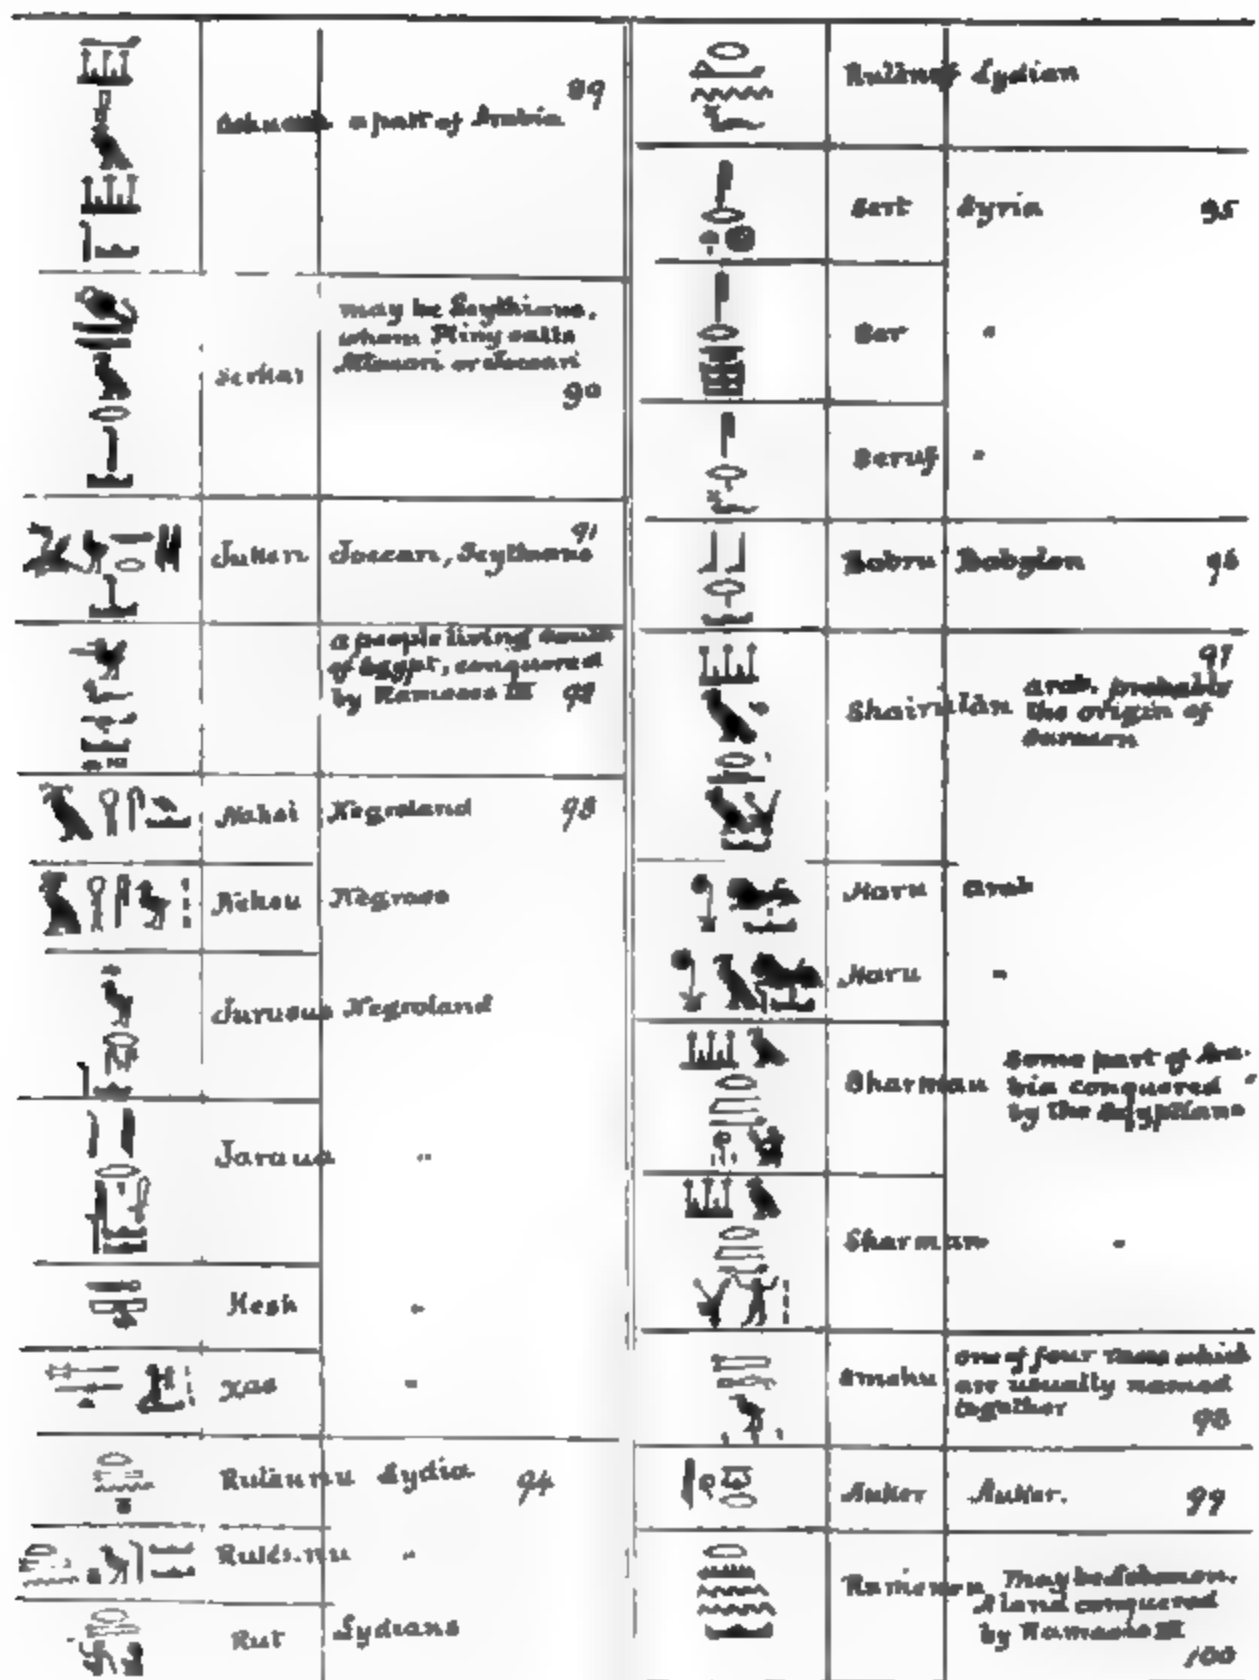 a part of Arabia 89
may be Scythians,
whom Pliny calls
or Joccari
90
Joccari, Scythians 91
a people living south
of Egypt, conquered
by Rameses III 92
Nahsi Negroland 93
Nehsu Negroes
Jurusus Negroland
Jaraua "
Kesh "
Xas "
Lydia 94
"
Rut Lydians
Lydian
Sert Syria 95
Ser "
"
Babru Babylon 96
97
arab. probably
the origin of
Haru arab
Haru "
Some part of Ara-
Sharmau bia conquered
by the Egyptians
Sharman "
one of four races which
are usually named
together 98
Auker Auker. 99
may be Lebanon.
A land conquered
by Rameses III
100